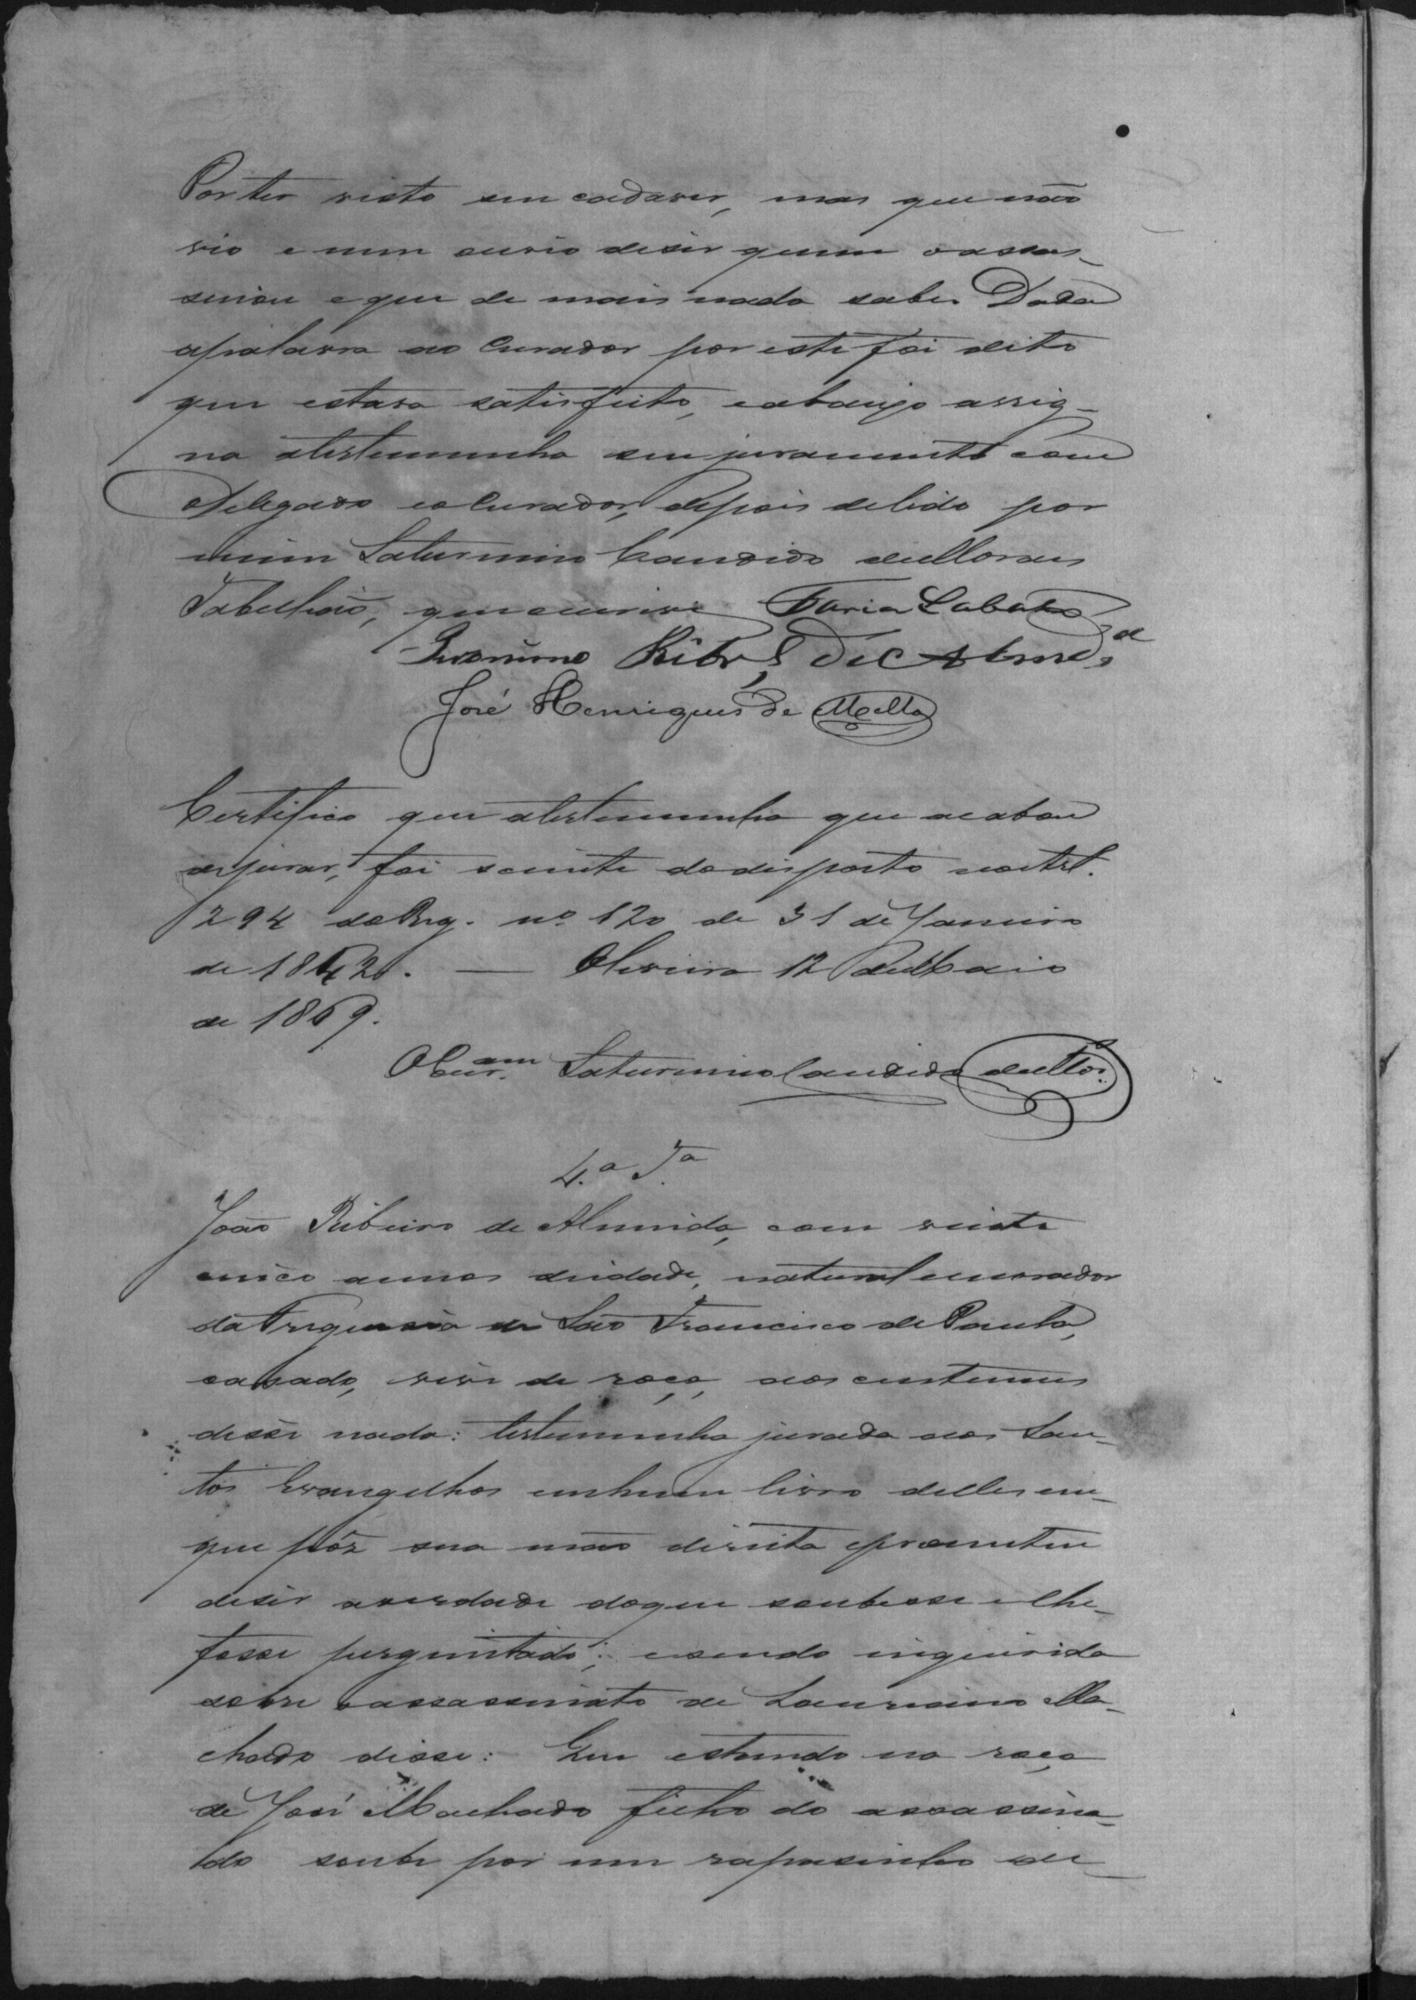 Por ter visto seu cadaver, mas que não
vio e nem ouvio diser quem o assas-
sinou e que de mais nada sabe. Dada
apalavra ao Curador por este foi dito
que estava satisfeito, eabaixo assig-
na atestemunha seu juramento com
Delegado eoCurador, depois delido por
mim Saturnino Candido deMoraes
Tabelliaõ, que escrivi Faria Lobato
Geronimo Ribr.º de Almd.ª
José Henriques de Mello
Certifico que atestemunha que acabou
dejurar, foi sciente dodisposto noart.
294 doReg. nº 120 de 31 de Janeiro
de 1842. — Oliveira 12 deMaio
de 1869.
OEscr.am Saturnino Candido deMor.
4.ª T.ª
João Ribeiro de Almeida, com vinte
cinco annos deidade, natural emorador
daFreguesia de São Francisco de Paula,
casado, vive de roça, aos custumes
disse nada: testemunha jurada aos San-
tos Evangelhos emhum livro delles em-
que pôz sua maõ direita eprometeu
diser averdade doque soubesse elhe-
fosse perguntado; esendo inquirida
sobre oassassinato de Laureano Ma-
chado disse: Que estando na roça
de José Machado filho do assassina-
do soube por um rapasinho de